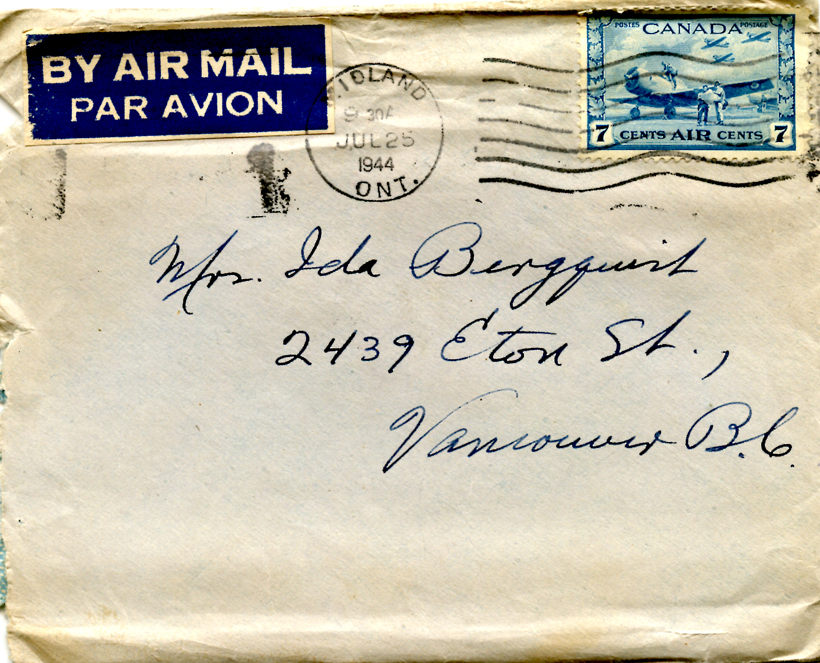 BY AIR MAIL
PAR AVION
MIDLAND
9 30A
JUL 25
1944
ONT.
POSTES CANADA POSTAGE
7 CENTS AIR CENTS 7
Mrs. Ida Bergquist
2439 Eton St.,
Vancouver B.C.